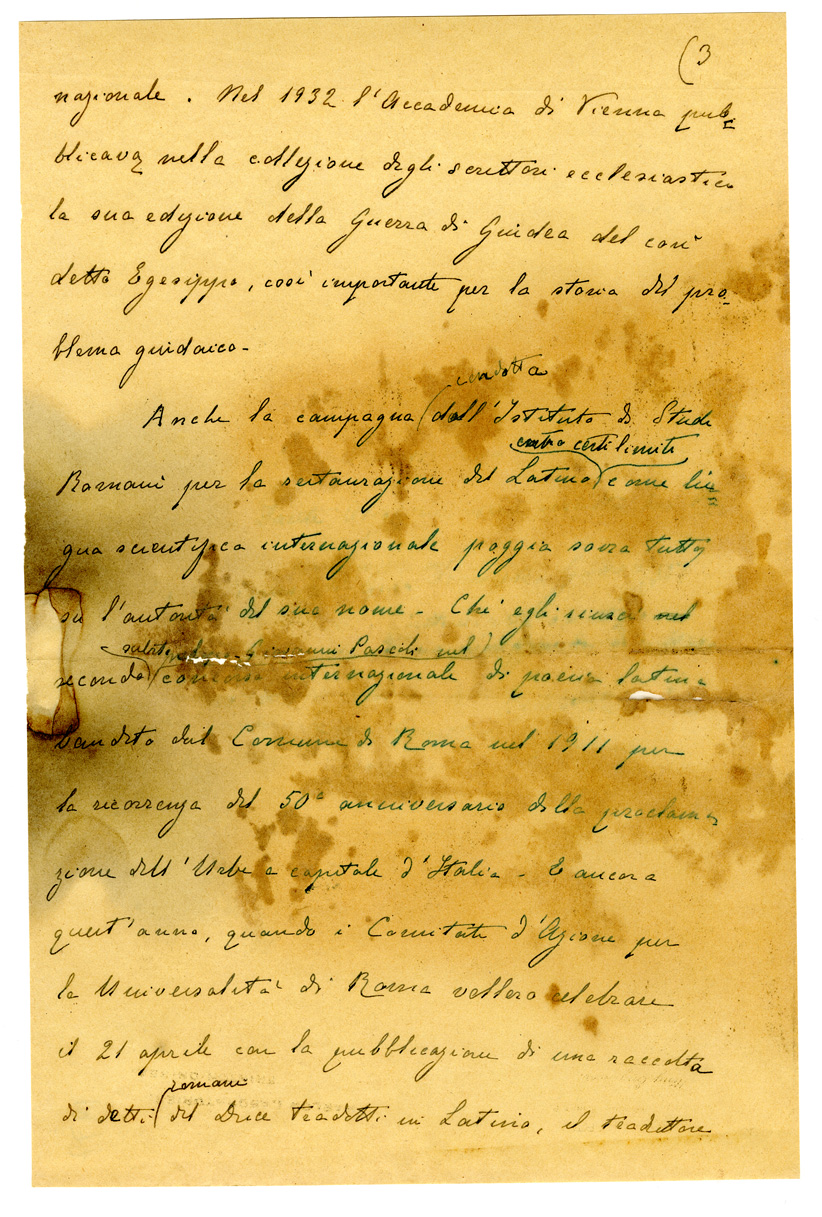 (3
nazionale. Nel 1932 l'Accademia di Vienna pub=
blicava nella collezione degli scrittori ecclesiastici
la sua edizione della Guerra di Giudea del così
detto Egesippo, così importante per la storia del pro=
blema giudaico -
condotta
Anche la campagna dall'Istituto di Studi
entro certi limiti
Romani per la restaurazione del Latino come lin=
gua scientifica internazionale poggia sovra tutto
su l'autorità del suo nome - Chè egli nel
subito Giovanni Pascoli nel
secondo concorso internazionale di poesia latina
bandito dal Comune di Roma nel 1911 per
la ricorrenza del 50° anniversario della proclama=
zione dell'Urbe a capitale d'Italia - E ancora
quest'anno, quando i Comitati d'Azione per
la Universalità di Roma vollero celebrare
il 21 aprile con la pubblicazione di una raccolta
romani
di detti del Duce tradotti in Latino, il traduttore